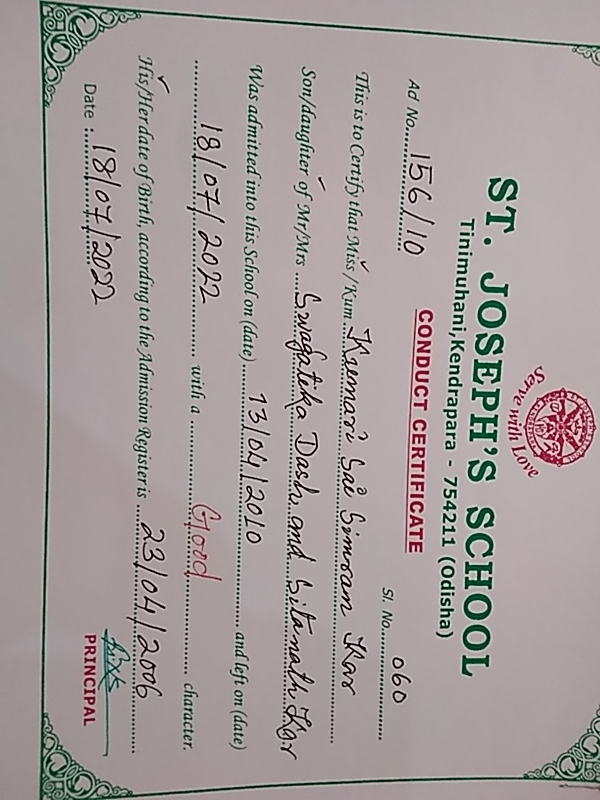 Serve with Love
ST. JOSEPH'S SCHOOL
Tinimuhani,Kendrapara - 754211 (Odisha)
CONDUCT CERTIFICATE
Ad No....156/10 Sl. No....060
This is to Certify that Miss/Kum...Kumari Sai Simran Kar
Son/daughter of Mr/Mrs ....Swagatika Dash and Sitanath Kar
Was admitted into this School on (date)....13/04/2010....and left on (date)
....18/07/2022.... with a ....Good.... character.
His/Her date of Birth, according to the Admission Register is ....23/04/2006
Date :...18/07/2022
PRINCIPAL